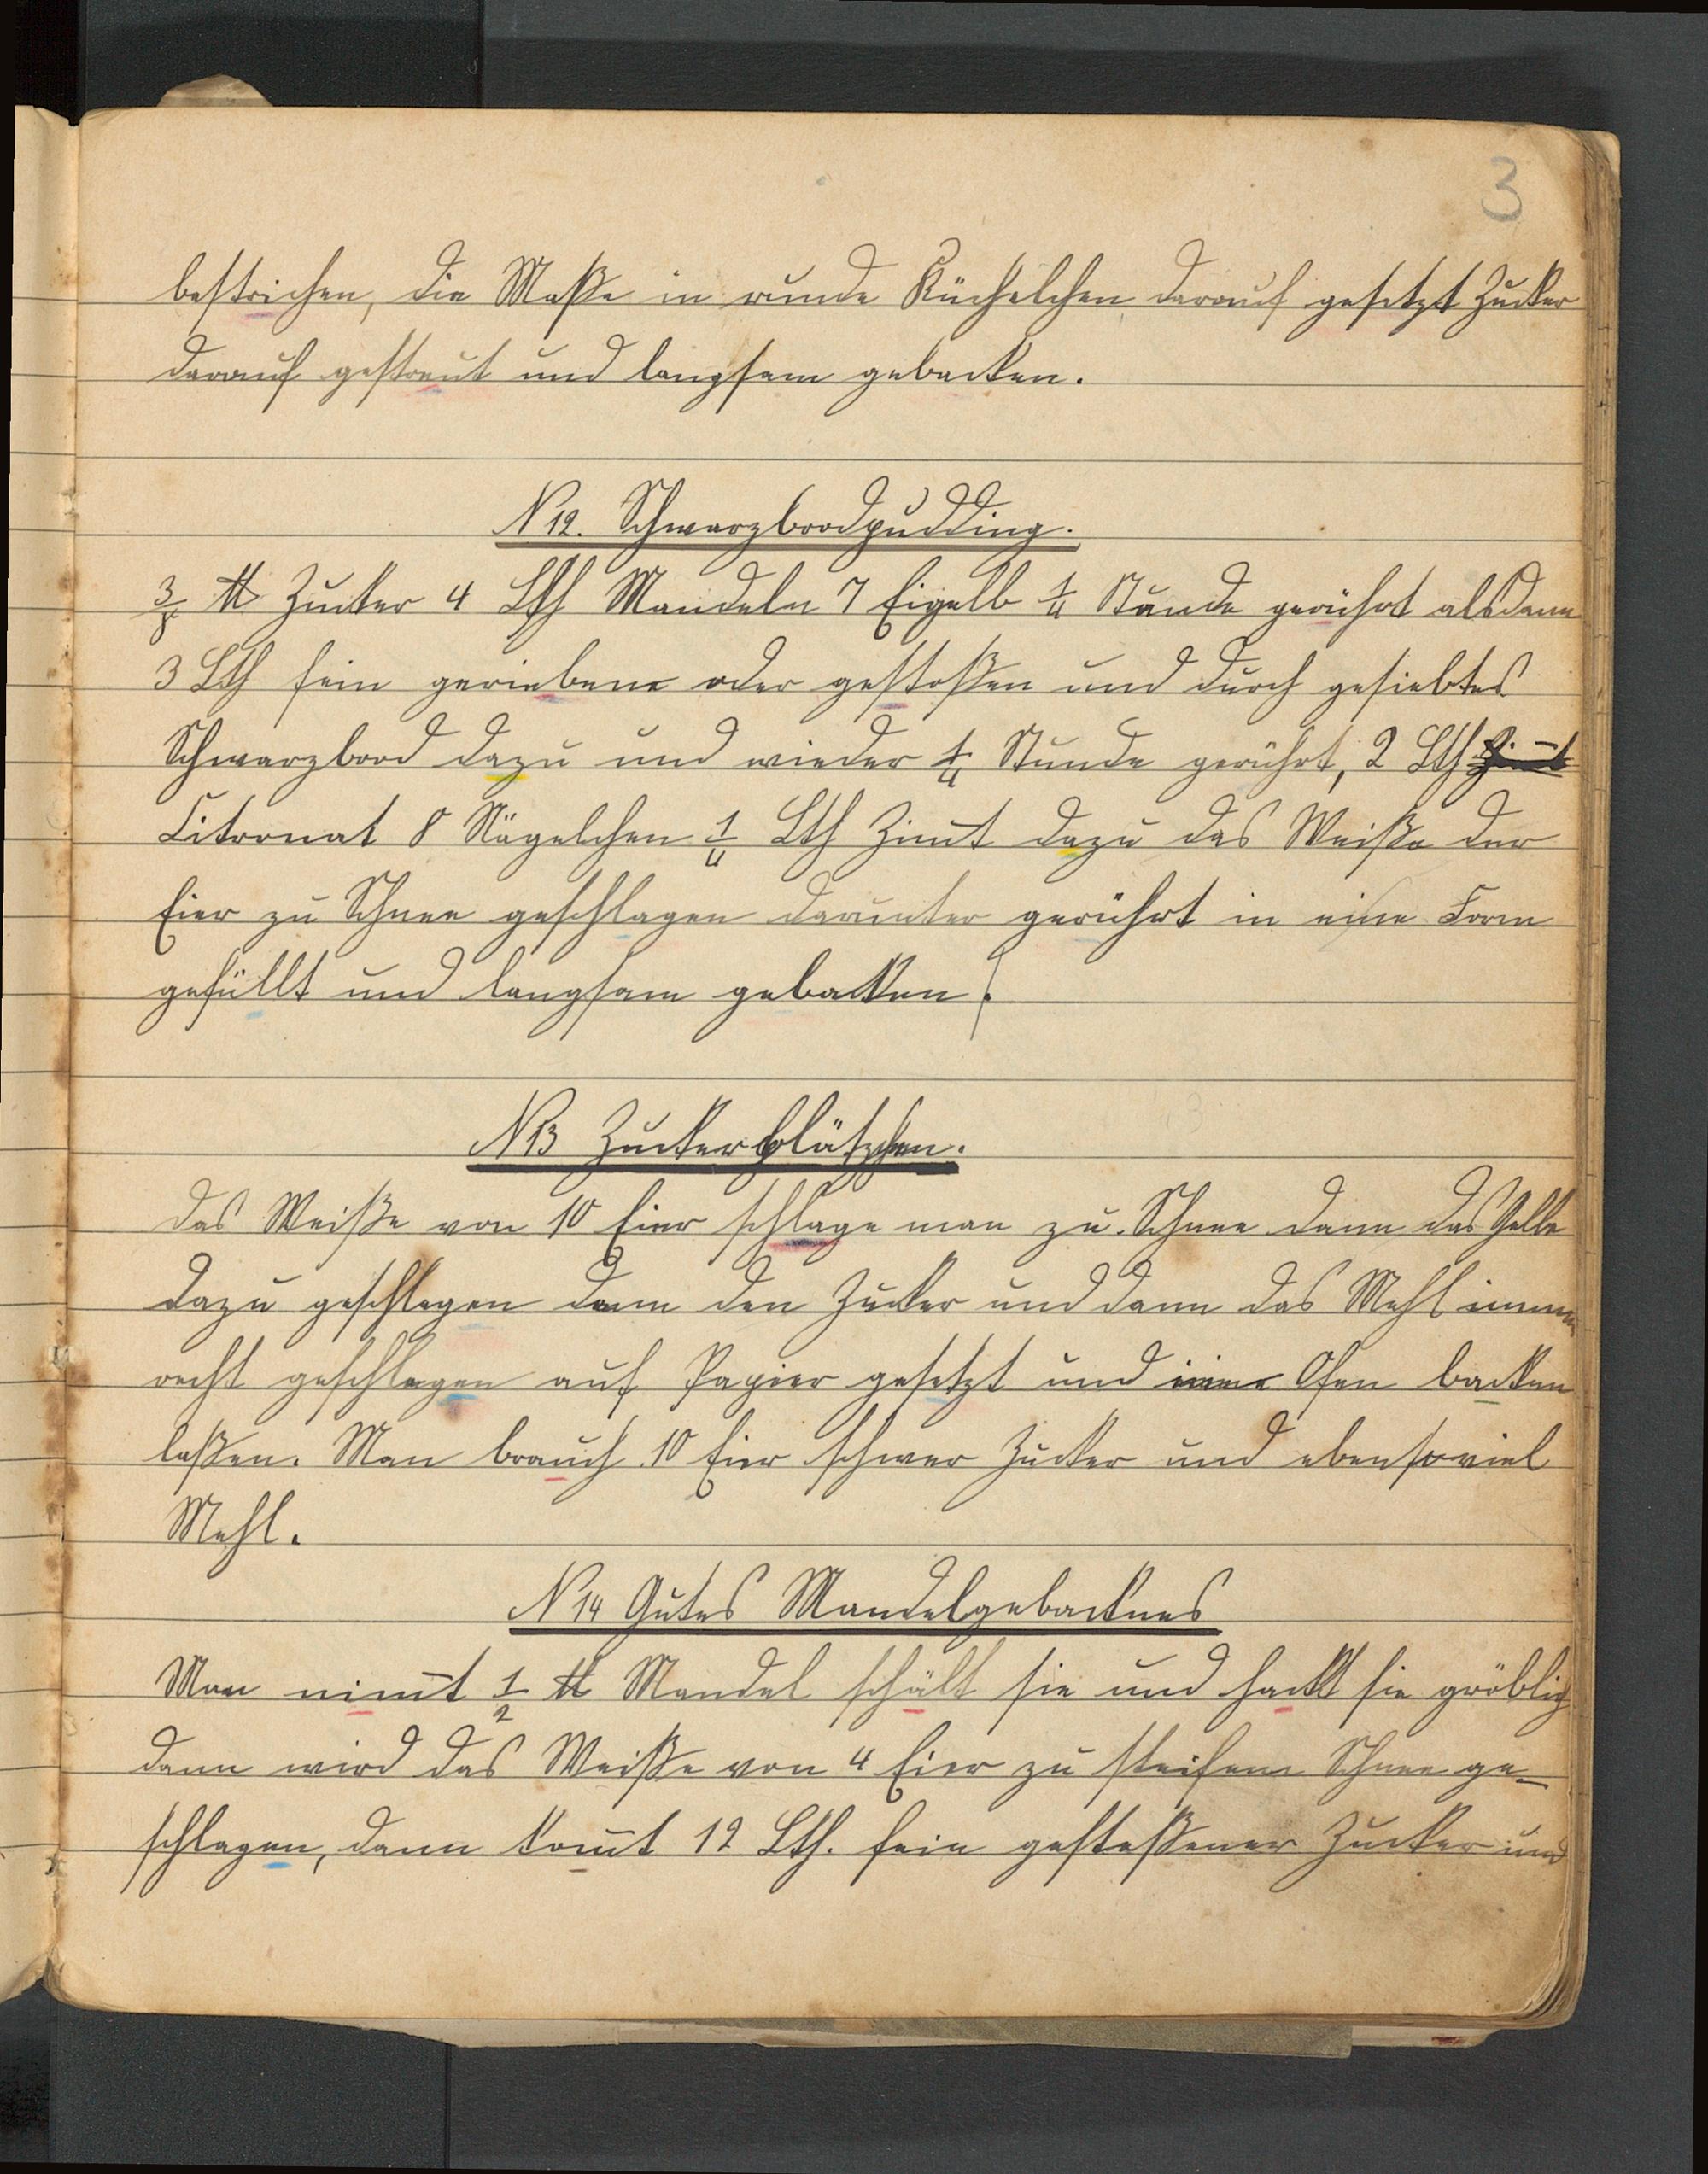 3
bestrichen, die Maße in runde Küchelchen darauf gesetzt Zucker
darauf gestreut und langsam gebacken.
N 12. Schwarzbrodpudding.
3/8 ℔ Zucker 4 Lth Mandeln 7 Eigelb 1/4 Stunde gerührt alsdann
3 Lth fein geriebene oder gestoßen und durch gesiebtes
Schwarzbrod dazu und wieder 1/4 Stunde gerührt, 2 Lth Zim̅t
Citronat 8 Nägelchen 1/4 Lth Zim̅t dazu das Weiße der
Eier zu Schnee geschlagen darunter gerührt in eine Form
gefüllt und langsam gebacken.
N 13 Zuckerblätzchen.
Das Weiße von 10 Eier schlage man zu Schnee dann das Gelbe
dazu geschlagen dann den Zucker und dann das Mehl immer
recht geschlagen auf Papier gesetzt und Ofen backen
laßen. Man brauch 10 Eier schwer Zucker und ebensoviel
Mehl.
N 14 Gutes Mandelgebacknes
Man nim̅t 1/2 ℔ Mandel schält sie und hackt sie gröblich
dann wird das Weiße von 4 Eier zu steifem Schnee ge-
schlagen, dann kom̅t 12 Lth. fein gestoßener Zucker und